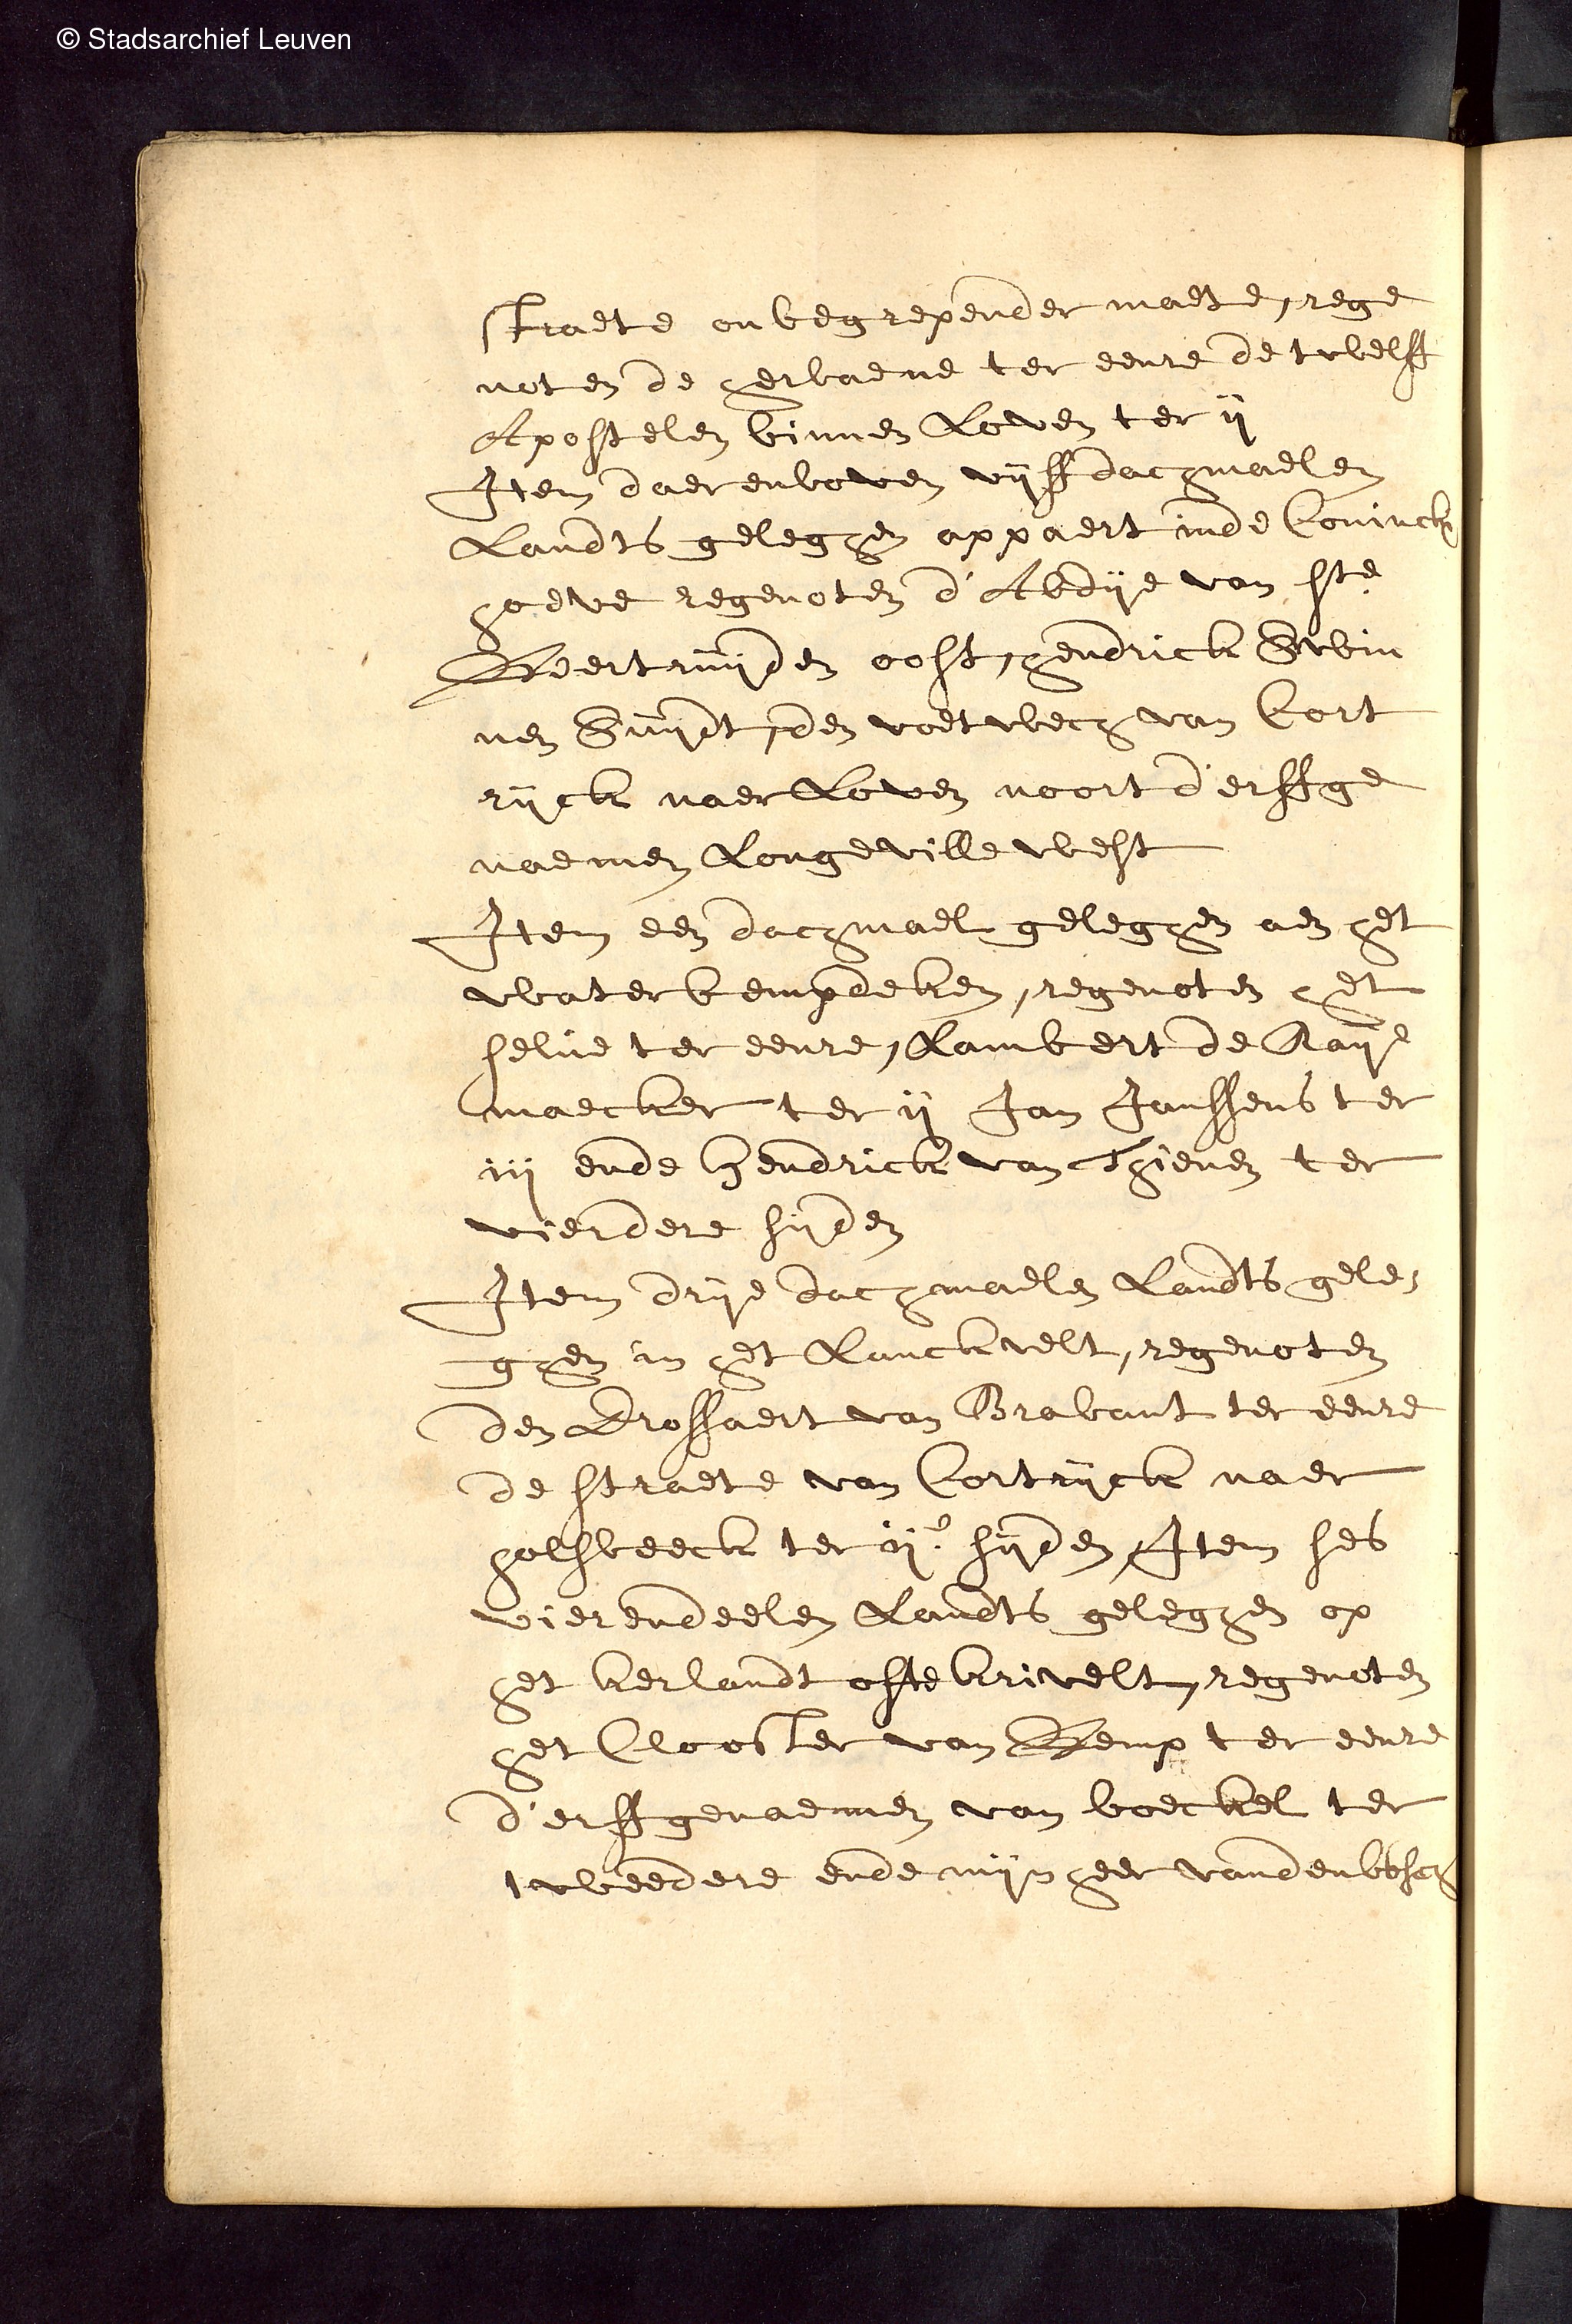 © Stadsarchief Leuven
straete onbegrepender maete, rege
noten de herbaene ter eenre de twelff
Apostelen binnen Loven ter ij
Item daerenboven vijff dachmaelen
Landts geleghen appaert inde Coninck
hoeve regenoten d'Abdije van ste
Geertruijden oost, hendrick Swin
nen Suijdt, den voetwech van Cort
rijck naer Loven noort d'erffge
naemen Longeville west
Item een dachmael geleghen aen het
waterbempdeken, regenoten het
selve ter eenre, Lambert de Raij
maecker ter ij Jan Janssens ter
iij ende Hendrick van Thienen ter
vierdere sijden
Item drije dachmaelen Landts gele,
ghen in het Lanckvelt, regenoten
den Drossaert van Brabant ter eenre
de straete van Cortrijck naer
holsbeeck ter ij.e sijden, Item ses
vierendeelen Landts geleghen op
het kerlandt ofte krivelt, regenoten
het Clooster van Gemp ter eenre
d'erffgenaemen van boeckel ter
tweedere ende mijn heer vanden